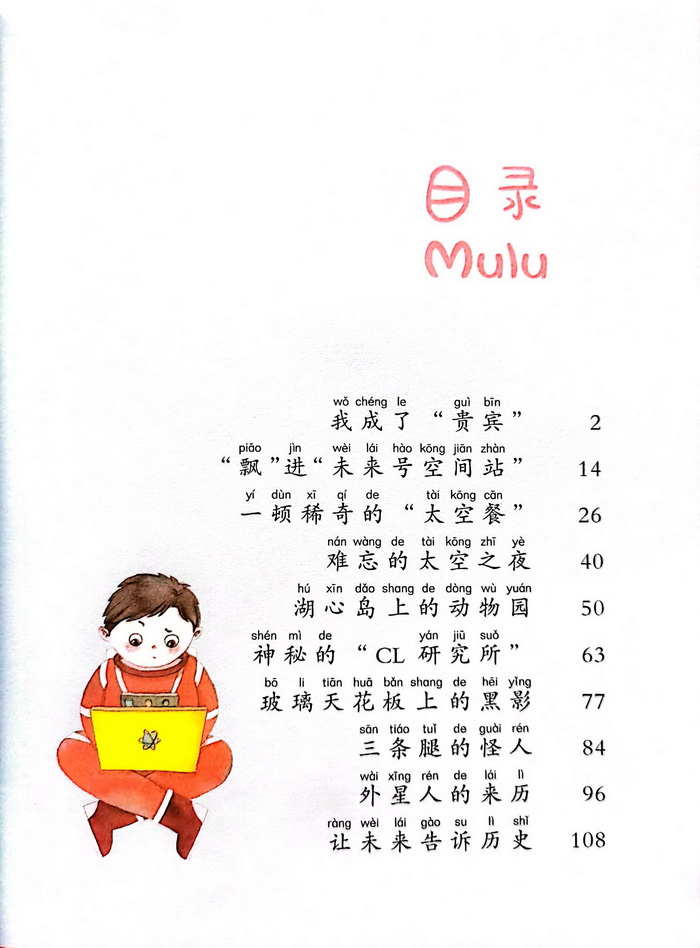 目录
Mulu
wǒ chéng le guì bīn
我成了“贵宾” 2
piāo jìn wèi lái hào kōng jiān zhàn
“飘”进“未来号空间站” 14
yí dùn xī qí de tài kōng cān
一顿稀奇的“太空餐” 26
nán wàng de tài kōng zhī yè
难忘的太空之夜 40
hú xīn dǎo shang de dòng wù yuán
湖心岛上的动物园 50
shén mì de yán jiū suǒ
神秘的“CL研究所” 63
bō li tiān huā bǎn shang de hēi yǐng
玻璃天花板上的黑影 77
sān tiáo tuǐ de guài rén
三条腿的怪人 84
wài xīng rén de lái lì
外星人的来历 96
ràng wèi lái gào su lì shǐ
让未来告诉历史 108